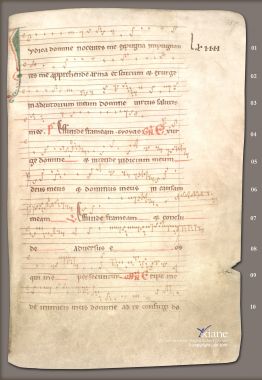 Iudica domine nocentes me expugna impugnan
tes me apprehende arma et scutum et exurge
in adiutorium meum domine uirtus salutis
mee. Ps Effunde frameam euouae GR Exur
ge domine et intende iudicium meum
deus meus et dominus meus in causam
meam Effunde frameam et conclu
de aduersus e os
qui me persecuntur Eripe me
de inimicis meis domine ad te confugi do
01
02
03
04
05
06
07
08
09
10